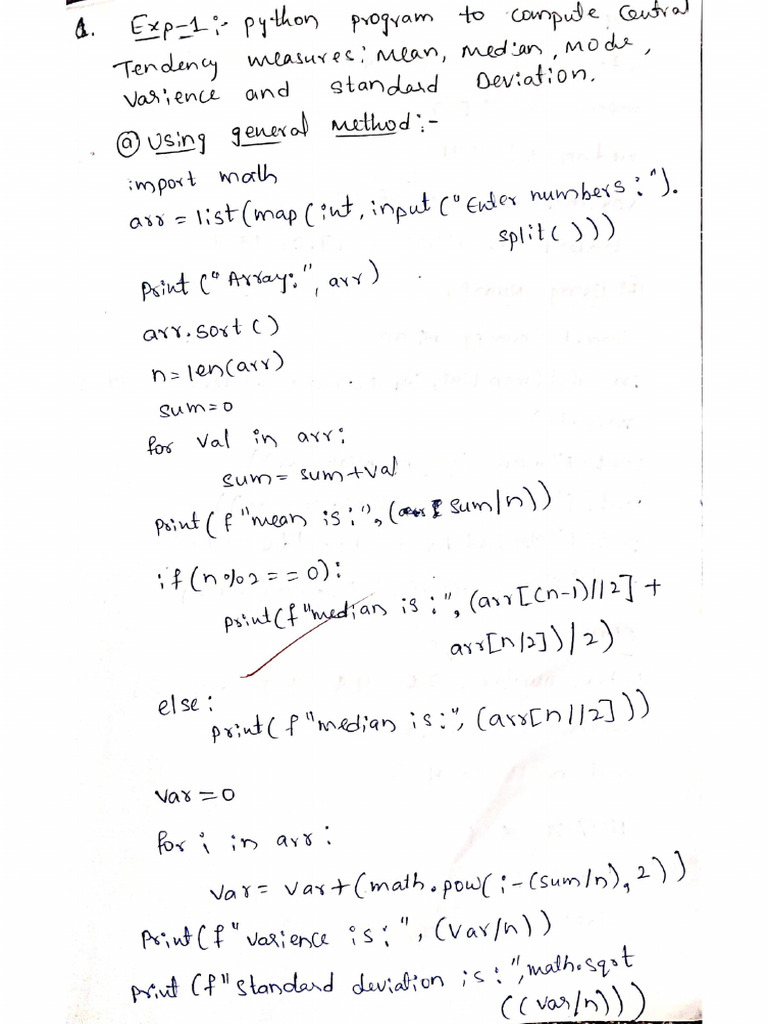 1. Exp-1:- python program to compute Central
Tendency measures: Mean, median, mode,
Varience and standard Deviation.
(a) Using general method:-
import math
arr = list(map(int, input("Enter numbers:").
split()))
Print("Array:", arr)
arr.sort()
n=len(arr)
sum=0
for val in arr:
sum= sum+val
Print(f"mean is:", (sum/n))
if(n%2==0):
print(f"median is:", (arr[(n-1)//2] +
arr[n/2])/2)
else:
print(f"median is:", (arr[n//2]))
var=0
for i in arr:
var= var+(math.pow(i-(sum/n),2))
Print(f"varience is:", (var/n))
Print(f"Standard deviation is:",math.sqrt
((var/n)))